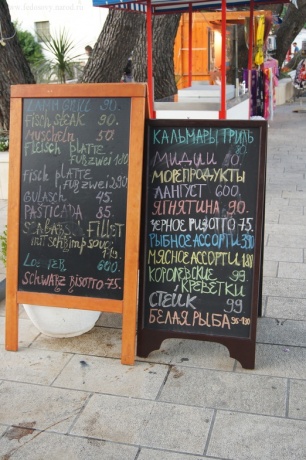 ZAHN GRILL 90.
FISCH STEAK 90.
MUSCHELN 50.
FLEISCH PLATTE
FUßZWEI 180
FISCH PLATTE
FUßZWEI 390
GULASCH 45.
PASTICADA 85.
SEABASS FILLET
MIT SCHRIMP SOUC. 119.
LOBSTER 600.
SCHWARZ RISOTTO 75.
КАЛЬМАРЫ ГРИЛЬ
90.
МИДИИ 50.
МОРЕПРОДУКТЫ
ЛАНГУСТ 600.
ЯГНЯТИНА 90.
ЧЕРНОЕ РИЗОТТО 75.
РЫБНОЕ АССОРТИ 390
МЯСНОЕ АССОРТИ 180
КОРОЛЕВСКИЕ 99
КРЕВЕТКИ
СТЕЙК 99
БЕЛАЯ РЫБА 90-130